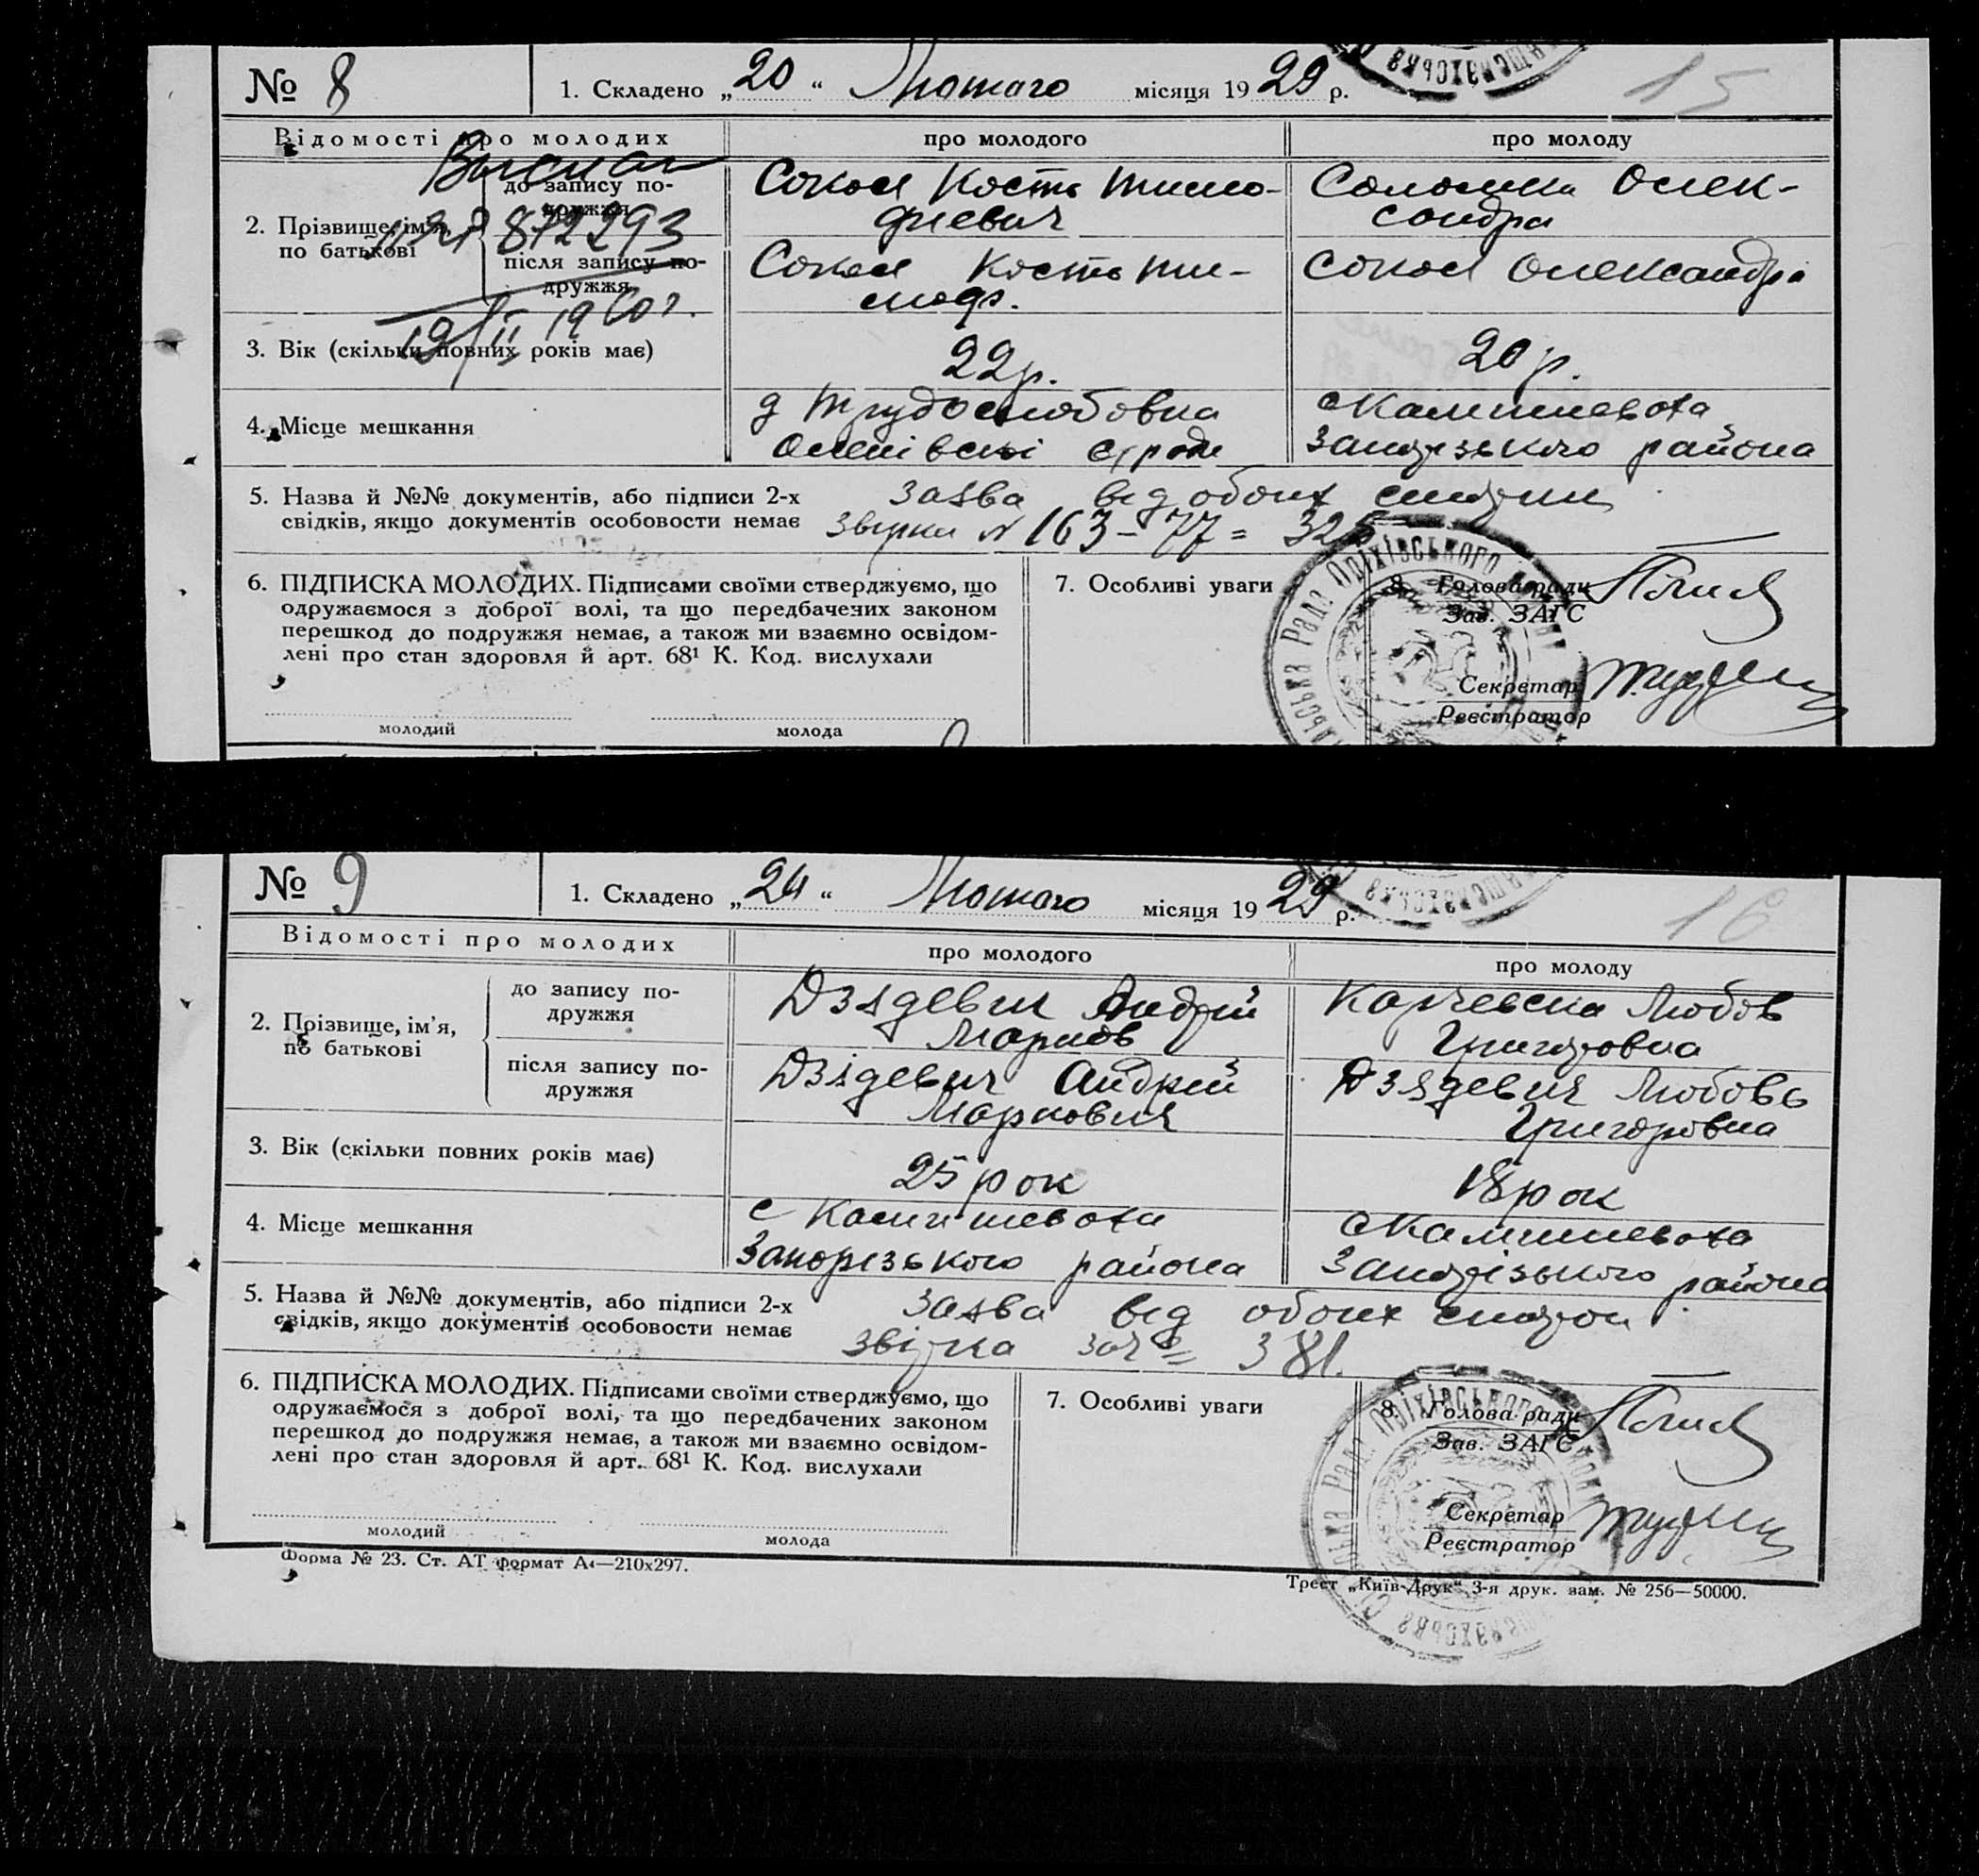 № 8
1. Складено „20“ Лютого місяця 1929 р.
15
Відомості про молодих
про молодого
про молоду
2. Прізвище, ім'я, по батькові
до запису по-
дружжя
872293
після запису по-
дружжя
19/II 1960г.
Сокол Кость Тимо-
фієвич
Сокол Кость Ти-
моф.
Соломка Олек-
сандра
Сокол Олександра
3. Вік (скільки повних років має)
22р.
20р.
4. Місце мешкання
д Трудолюбовка
с Камишеваха
Запорізького района
5. Назва й №№ документів, або підписи 2-х
свідків, якщо документів особовости немає
Заява від обоих сторон
Звірки № 163-77= 325
6. ПІДПИСКА МОЛОДИХ. Підписами своїми стверджуємо, що
одружаємося з доброї волі, та що передбачених законом
перешкод до подружжя немає, а також ми взаємно освідом-
лені про стан здоровля й арт. 68¹ К. Код. вислухали
молодий
молода
7. Особливі уваги
8. Голова ради
Зав. ЗАГС
Секретар
Реєстратор
№ 9
1. Складено „24“ Лютого місяця 1929 р.
16
Відомості про молодих
про молодого
про молоду
2. Прізвище, ім'я,
по батькові
до запису по-
дружжя
після запису по-
дружжя
Дзядевич Андрій
Марков
Дзядевич Андрій
Маркович
Карчевска Любов
Григоровна
Дзядевич Любовь
Григоровна
3. Вік (скільки повних років має)
25 рок
18 рок
4. Місце мешкання
с Камишеваха
Запорізького района
с Камишеваха
Запорізького района
5. Назва й №№ документів, або підписи 2-х
свідків, якщо документів особовости немає
Заява від обоих сторон
звірка 381.
6. ПІДПИСКА МОЛОДИХ. Підписами своїми стверджуємо, що
одружаємося з доброї волі, та що передбачених законом
перешкод до подружжя немає, а також ми взаємно освідом-
лені про стан здоровля й арт. 68¹ К. Код. вислухали
молодий
молода
7. Особливі уваги
8. Голова ради
Зав. ЗАГС
Секретар
Реєстратор
Форма № 23. Ст. АТ формат А₄—210х297.
Трест „Київ-Друк“ 3-я друк. зам. № 256—50000.